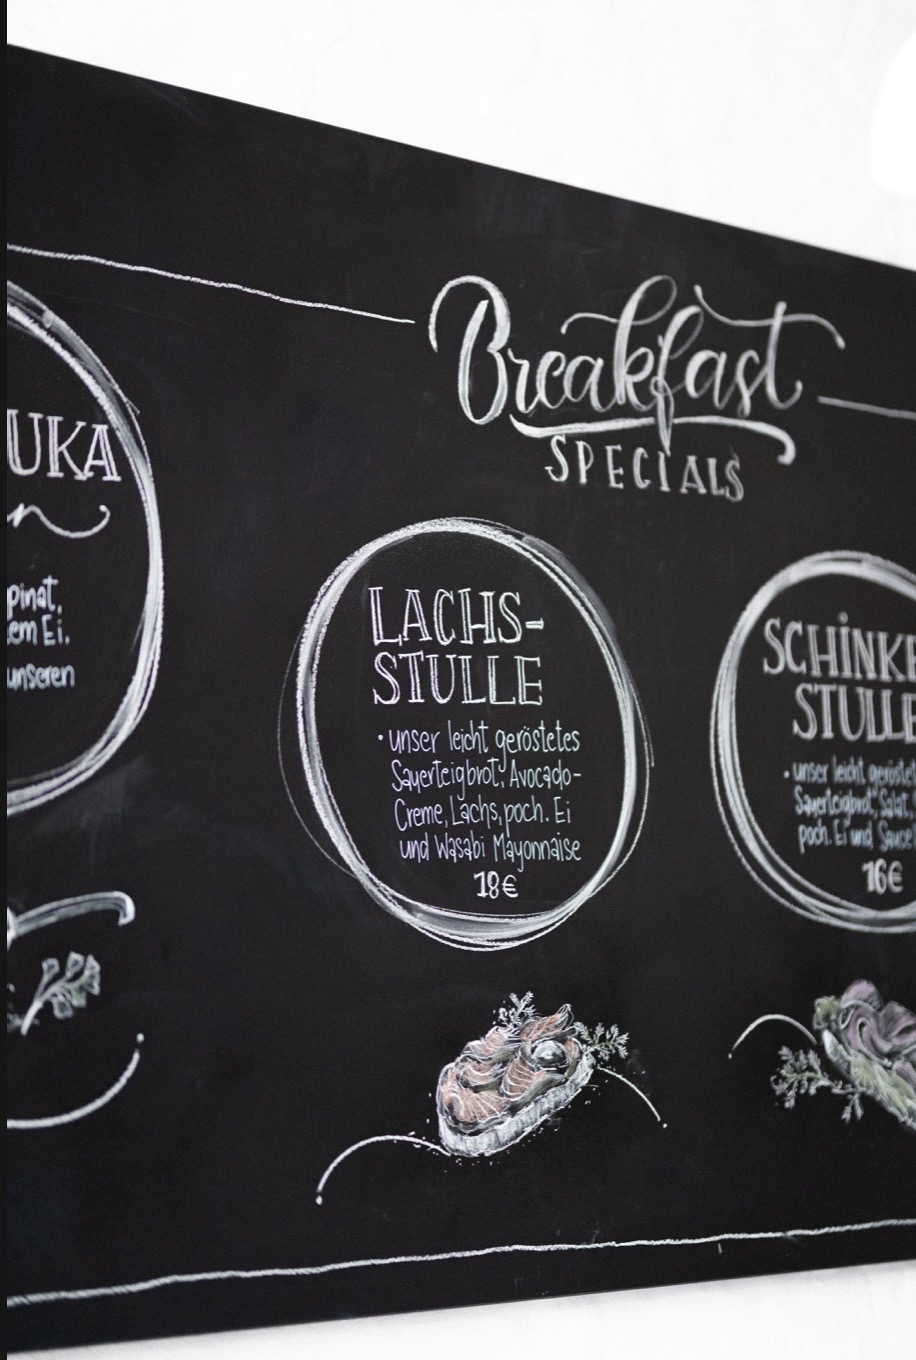 Breakfast
SPECIALS
UKA
pinat,
em Ei.
unseren
LACHS-
STULLE
• unser leicht geröstetes
Sauerteigbrot, Avocado-
Creme, Lachs, poch. Ei
und Wasabi Mayonnaise
18€
SCHINKE
STULLE
• unser leicht geröstet
Sauerteigbrot, Salat,
poch. Ei und Sauce
16€